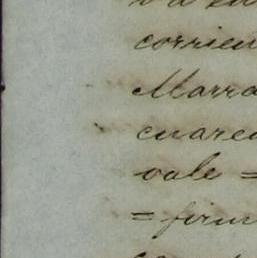 corrien
Marra
cuaren
vale =
= firm